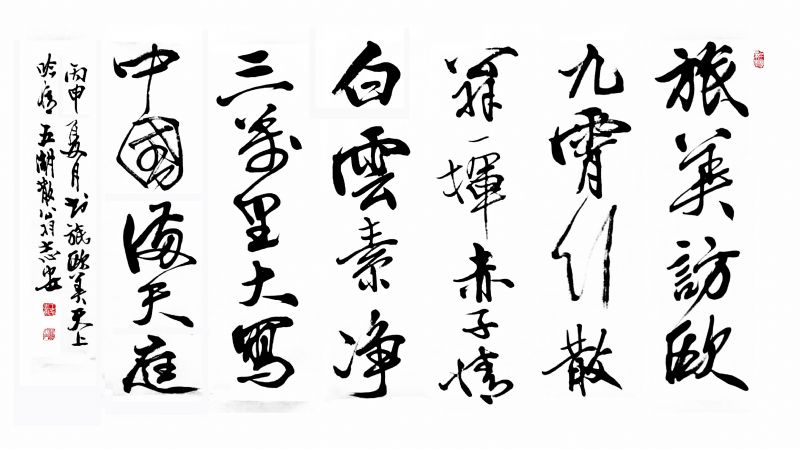 旅美訪歐
九霄行散
翁一揮赤子情
白雲素淨
三萬里大寫
中國滿天庭
丙申夏月於旅歐美天上
吟情五湖散翁志安